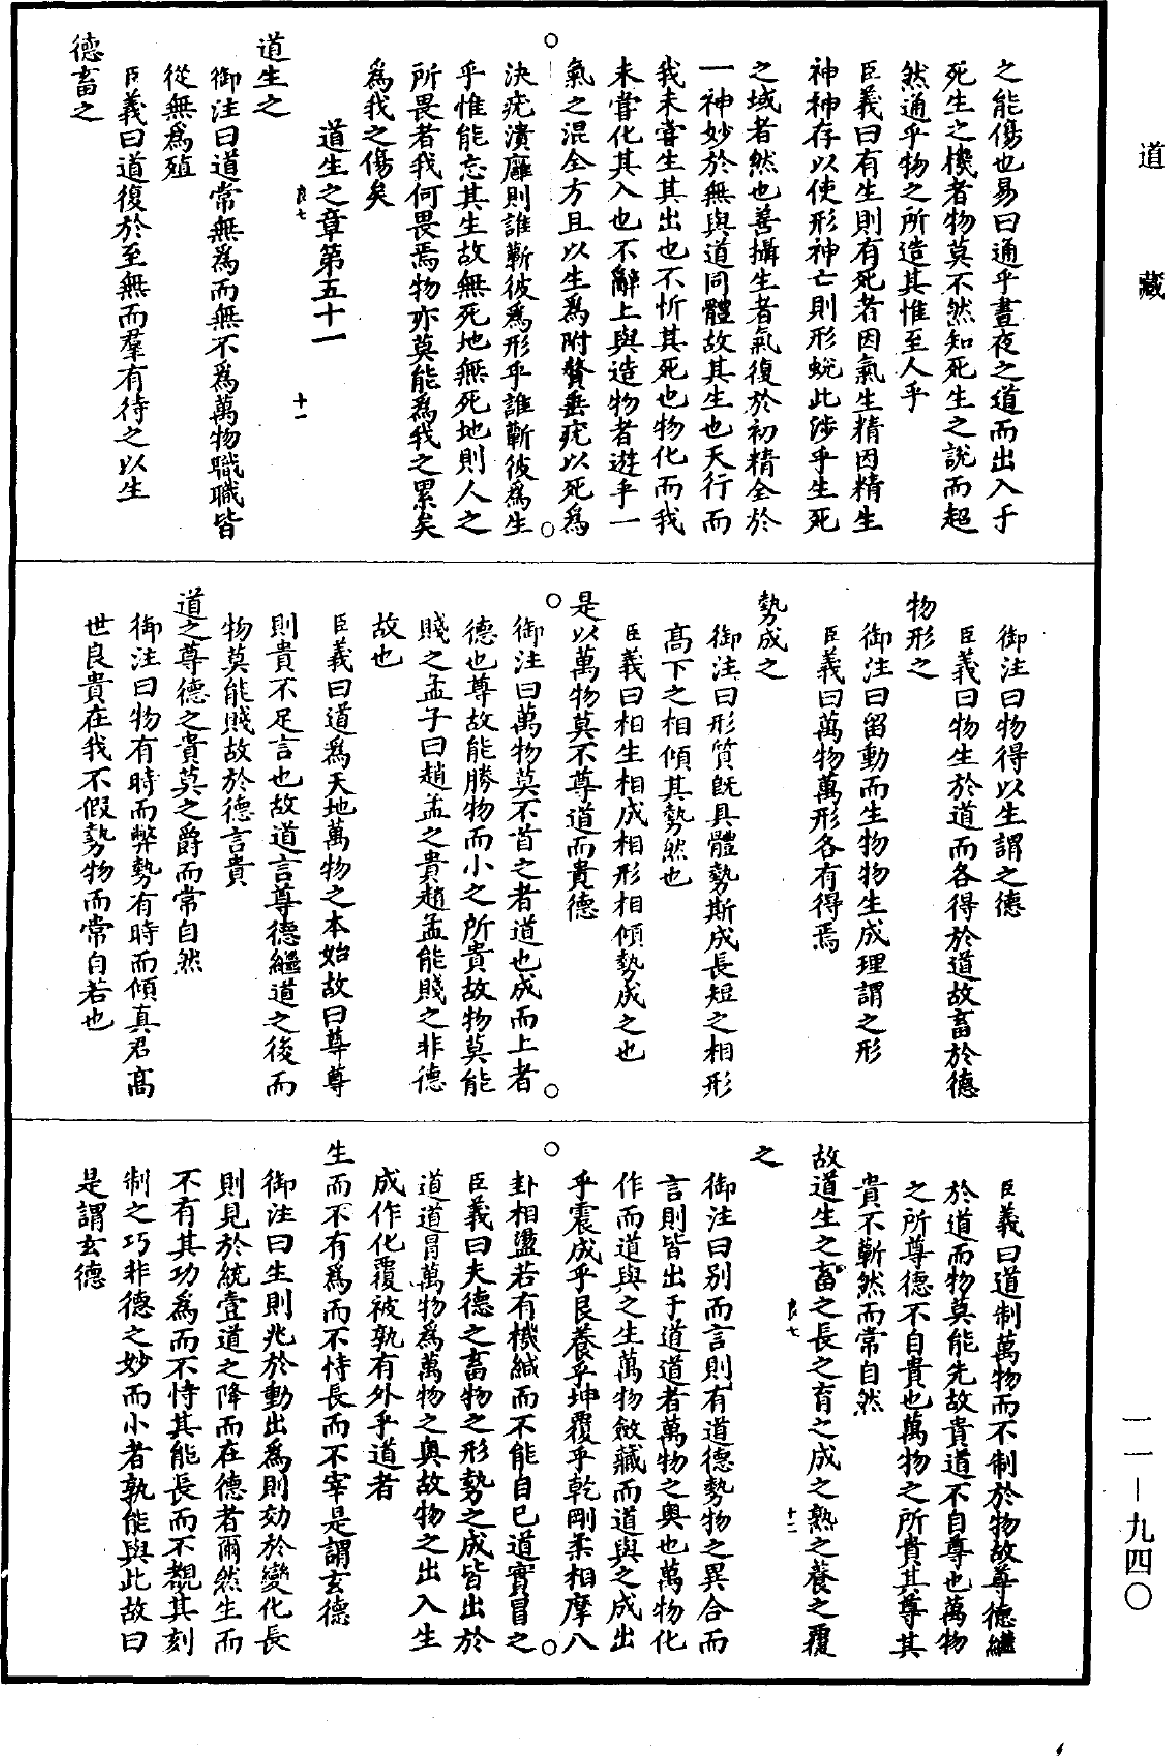 道藏
之能傷也易曰通乎晝夜之道而出入于
死生之機者物莫不然知死生之說而超
然通乎物之所造其惟至人乎
臣義曰有生則有死者因氣生精因精生
神神存以使形神亡則形蛻此涉乎生死
之域者然也善攝生者氣復於初精全於
一神妙於無與道同體故其生也天行而
我未嘗生其出也不忻其死也物化而我
未嘗化其入也不辭上與造物者遊乎一
氣之混全方且以生為附贅垂疣以死為
決疣潰癰則誰蘄彼為形乎誰蘄彼為生
乎惟能忘其生故無死地無死地則人之
所畏者我何畏焉物亦莫能為我之累矣
為我之傷矣
道生之章第五十一
良七
十一
道生之
御注曰道常無為而無不為萬物職職皆
從無為殖
臣義曰道復於至無而羣有待之以生
德畜之
御注曰物得以生謂之德
臣義曰物生於道而各得於道故畜於德
物形之
御注曰留動而生物物生成理謂之形
臣義曰萬物萬形各有得焉
勢成之
御注曰形質旣具體勢斯成長短之相形
高下之相傾其勢然也
臣義曰相生相成相形相傾勢成之也
是以萬物莫不尊道而貴德
御注曰萬物莫不首之者道也成而上者
德也尊故能勝物而小之所貴故物莫能
賤之孟子曰趙孟之貴趙孟能賤之非德
故也
臣義曰道為天地萬物之本始故曰尊尊
則貴不足言也故道言尊德繼道之後而
物莫能賤故於德言貴
道之尊德之貴莫之爵而常自然
御注曰物有時而弊勢有時而傾真君高
世良貴在我不假勢物而常自若也
臣義曰道制萬物而不制於物故尊德繼
於道而物莫能先故貴道不自尊也萬物
之所尊德不自貴也萬物之所貴其尊其
貴不蘄然而常自然
故道生之畜之長之育之成之熟之養之覆
良七
十二
之
御注曰別而言則有道德勢物之異合而
言則皆出于道道者萬物之奧也萬物化
作而道與之生萬物斂藏而道與之成出
乎震成乎艮養乎坤覆乎乾剛柔相摩八
卦相盪若有機緘而不能自已道實冒之
臣義曰夫德之畜物之形勢之成皆出於
道道冒萬物為萬物之奧故物之出入生
成作化覆被孰有外乎道者
生而不有為而不恃長而不宰是謂玄德
御注曰生則兆於動出為則効於變化長
則見於統壹道之降而在德者爾然生而
不有其功為而不恃其能長而不覩其刻
制之巧非德之妙而小者孰能與此故曰
是謂玄德
一一—九四〇